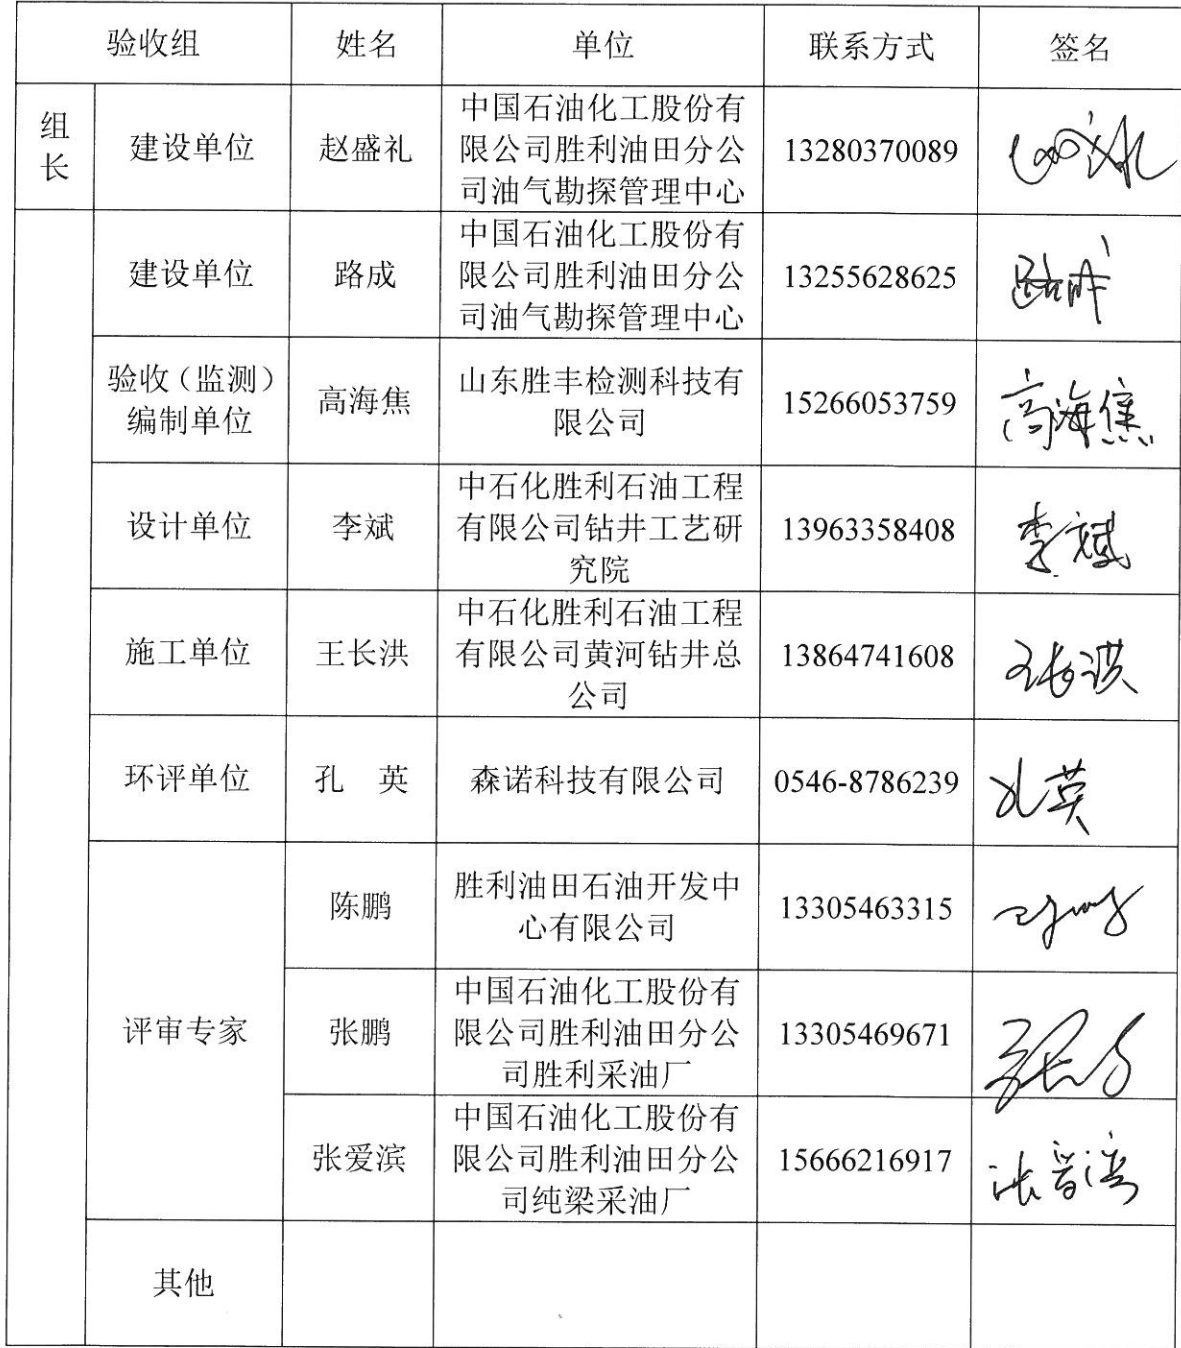 验收组 姓名 单位 联系方式 签名
组
长
建设单位 赵盛礼
中国石油化工股份有
限公司胜利油田分公
司油气勘探管理中心
13280370089
建设单位 路成
中国石油化工股份有
限公司胜利油田分公
司油气勘探管理中心
13255628625 路成
验收（监测）
编制单位
高海焦
山东胜丰检测科技有
限公司
15266053759 高海焦
设计单位 李斌
中石化胜利石油工程
有限公司钻井工艺研
究院
13963358408 李斌
施工单位 王长洪
中石化胜利石油工程
有限公司黄河钻井总
公司
13864741608 王长洪
环评单位 孔 英 森诺科技有限公司 0546-8786239 孔英
评审专家
陈鹏
胜利油田石油开发中
心有限公司
13305463315
张鹏
中国石油化工股份有
限公司胜利油田分公
司胜利采油厂
13305469671
张爱滨
中国石油化工股份有
限公司胜利油田分公
司纯梁采油厂
15666216917
其他